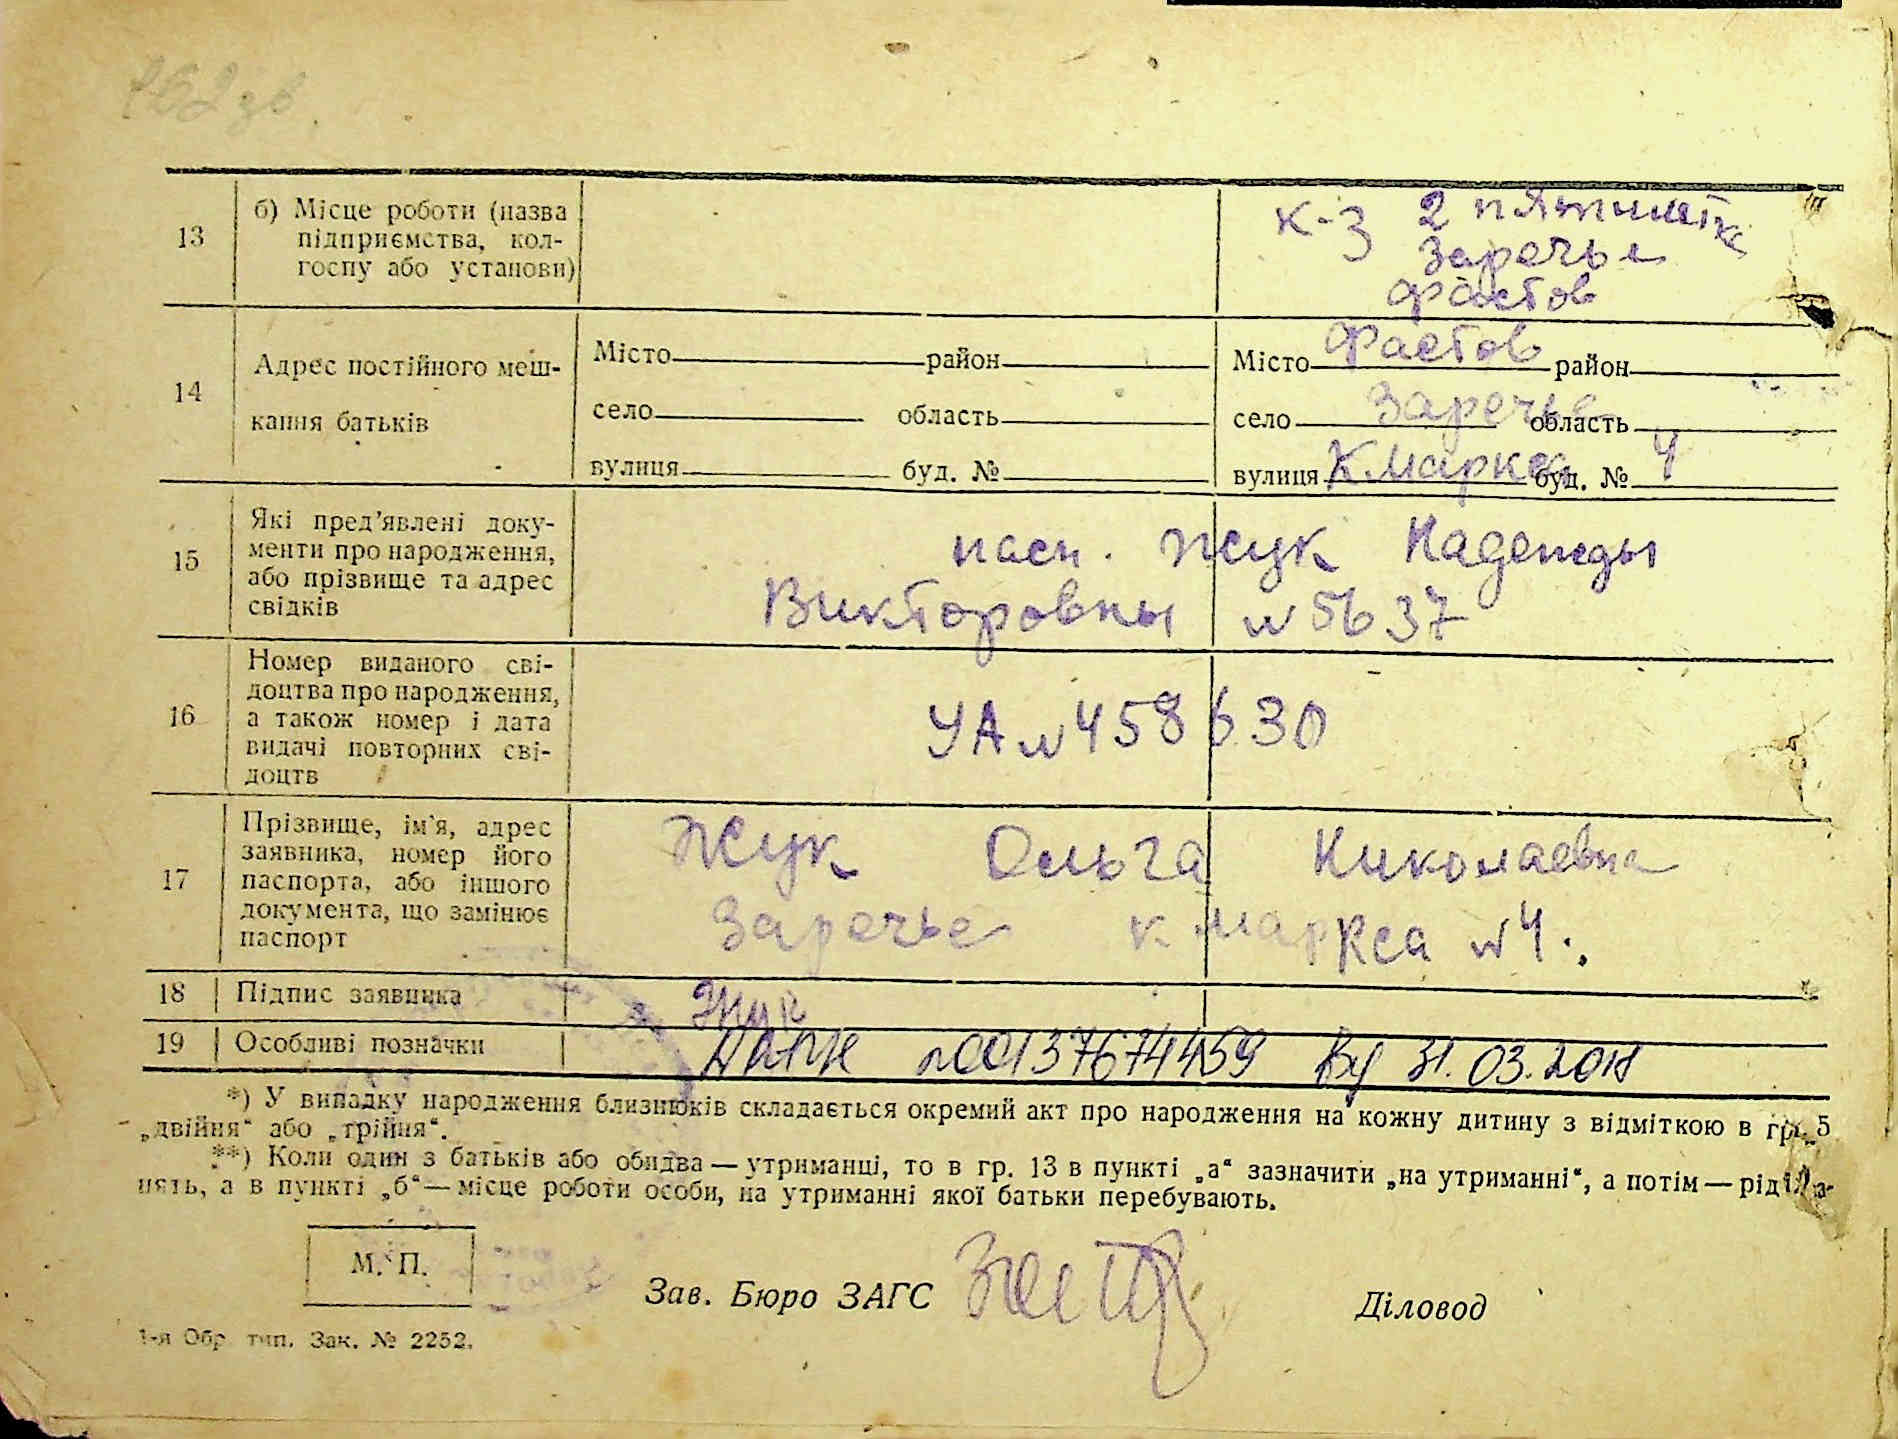 162 зв.
13 б) Місце роботи (назва підприємства, колгоспу або установи)
к-з 2 пятилетка
Заречье
Фастов
14 Адрес постійного меш-
кання батьків
Місто район Місто Фастов район
село область село Заречье область
вулиця буд. № вулиця К.Маркса буд. № 4
15 Які пред’явлені доку-
менти про народження,
або прізвище та адрес
свідків
пасп. Жук Надежды
Викторовны №5637
16 Номер виданого сві-
доцтва про народження,
а також номер і дата
видачі повторних сві-
доцтв
УА №458630
17 Прізвище, ім’я, адрес
заявника, номер його
паспорта, або іншого
документа, що замінює
паспорт
Жук Ольга Николаевна
Заречье к маркса №4.
18 Підпис заявника
Жук
19 Особливі позначки
№00137674459 31.03.2011
*) У випадку народження близнюків складається окремий акт про народження на кожну дитину з відміткою в гр. 5
„двійня“ або „трійня“.
**) Коли один з батьків або обидва — утриманці, то в гр. 13 в пункті „а“ зазначити „на утриманні“, а потім — рід за-
нять, а в пункті „б“ — місце роботи особи, на утриманні якої батьки перебувають.
М. П.
Зав. Бюро ЗАГС
Діловод
1-я Обр. тип. Зак. № 2252.